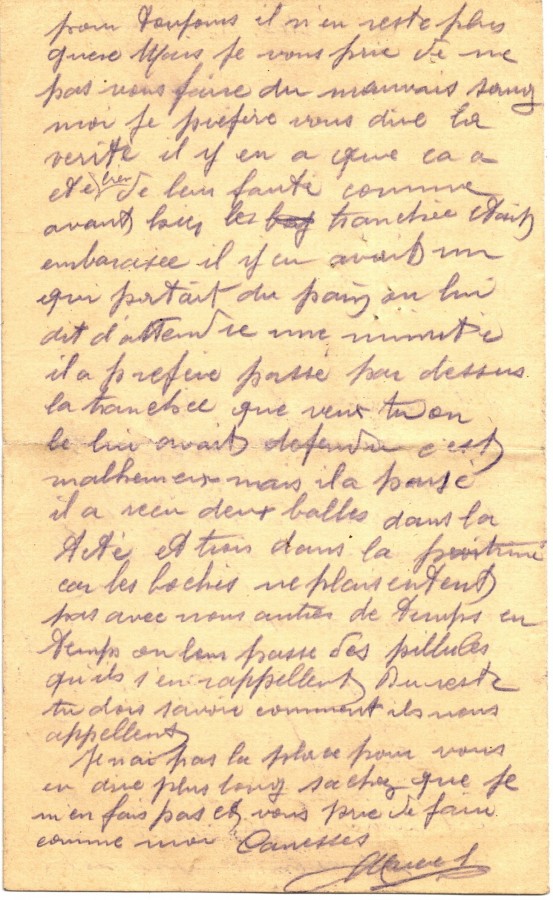 pour toujours il n'en reste plus
guere Mais je vous prie de ne
pas vous faire du mauvais sang
moi je prefere vous dire la
verite il y en a que ca a
ete bien de leur faute comme
avant hier les tranchée etait
embarasée il y en avait un
qui portait du pain on lui
dit d'attendre une minute
il a prefere passe par dessus
la tranchee que veux tu on
le lui avait defendu c'est
malheureux mais il a passé
il a recu deux balles dans la
tete et trois dans la poitrine
car les boches ne plaisentent
pas avec nous autres de temps en
temps on leur passe des pillules
qu'ils s'en rappellent Du reste
tu dois savoir comment ils nous
appellent
Je n'ai pas la place pour vous
en dire plus long sachez que je
m'en fais pas et vous prie de faire
comme moi Caresses